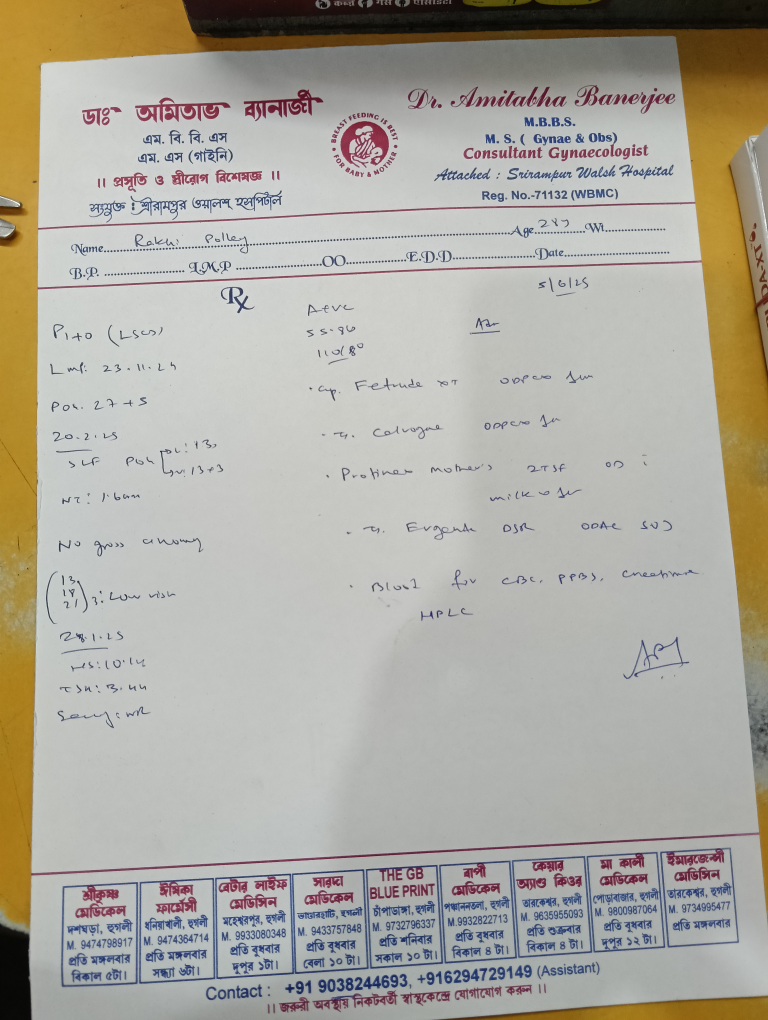 ডাঃ অমিতাভ ব্যানার্জী
এম. বি. বি. এস
এম. এস (গাইনি)
।। প্রসূতি ও স্ত্রীরোগ বিশেষজ্ঞ ।।
সংযুক্ত : শ্রীরামপুর ওয়ালশ্ হসপিটাল
BREAST FEEDING IS BEST
FOR BABY & MOTHER
Dr. Amitabha Banerjee
M.B.B.S.
M. S. ( Gynae & Obs)
Consultant Gynaecologist
Attached : Srirampur Walsh Hospital
Reg. No.-71132 (WBMC)
Name Rakhi Polley Age 28y Wt
B.P. L.M.P OO E.D.D Date
Rx
5/6/25
P1+0 (LSCS)
Lmp: 23.11.24
POG. 27+5
20.2.25
SLF POG
NT: 1.6mm
No gross anomaly
13
18
21 : Low risk
28.1.25
TSH: 3.44
55.96
110/80
Adv
• Cap. ODPC
• T. ODPC
• Protinex mother's 2TSF OD
milk
• T. DSR ODAC
• Blood for CBC, PPBS, creatinine
HPLC
শ্রীকৃষ্ণ মেডিকেল
দশঘড়া, হুগলী
M. 9474798917
প্রতি মঙ্গলবার
বিকাল ৫টা।
ঈষিকা ফার্মেসী
ধনিয়াখালী, হুগলী
M. 9474364714
প্রতি মঙ্গলবার
সন্ধ্যা ৬টা।
বেটার লাইফ মেডিসিন
মহেশ্বরপুর, হুগলী
M. 9933080348
প্রতি বুধবার
দুপুর ১টা।
সারদা মেডিকেল
হুগলী
M. 9433757848
প্রতি বুধবার
বেলা ১০ টা।
THE GB BLUE PRINT
চাঁপাডাঙ্গা, হুগলী
M. 9732796337
প্রতি শনিবার
সকাল ১০ টা।
বাপী মেডিকেল
পঞ্চাননতলা, হুগলী
M.9932822713
প্রতি বুধবার
বিকাল ৪ টা।
কেয়ার অ্যাণ্ড কিওর
তারকেশ্বর, হুগলী
M. 9635955093
প্রতি শুক্রবার
বিকাল ৪ টা।
মা কালী মেডিকেল
পোড়াবাজার, হুগলী
M. 9800987064
প্রতি বুধবার
দুপুর ১২ টা।
ইমারজেন্সী মেডিসিন
তারকেশ্বর, হুগলী
M. 9734995477
প্রতি মঙ্গলবার
Contact : +91 9038244693, +916294729149 (Assistant)
।। জরুরী অবস্থায় নিকটবর্তী স্বাস্থ্যকেন্দ্রে যোগাযোগ করুন ।।